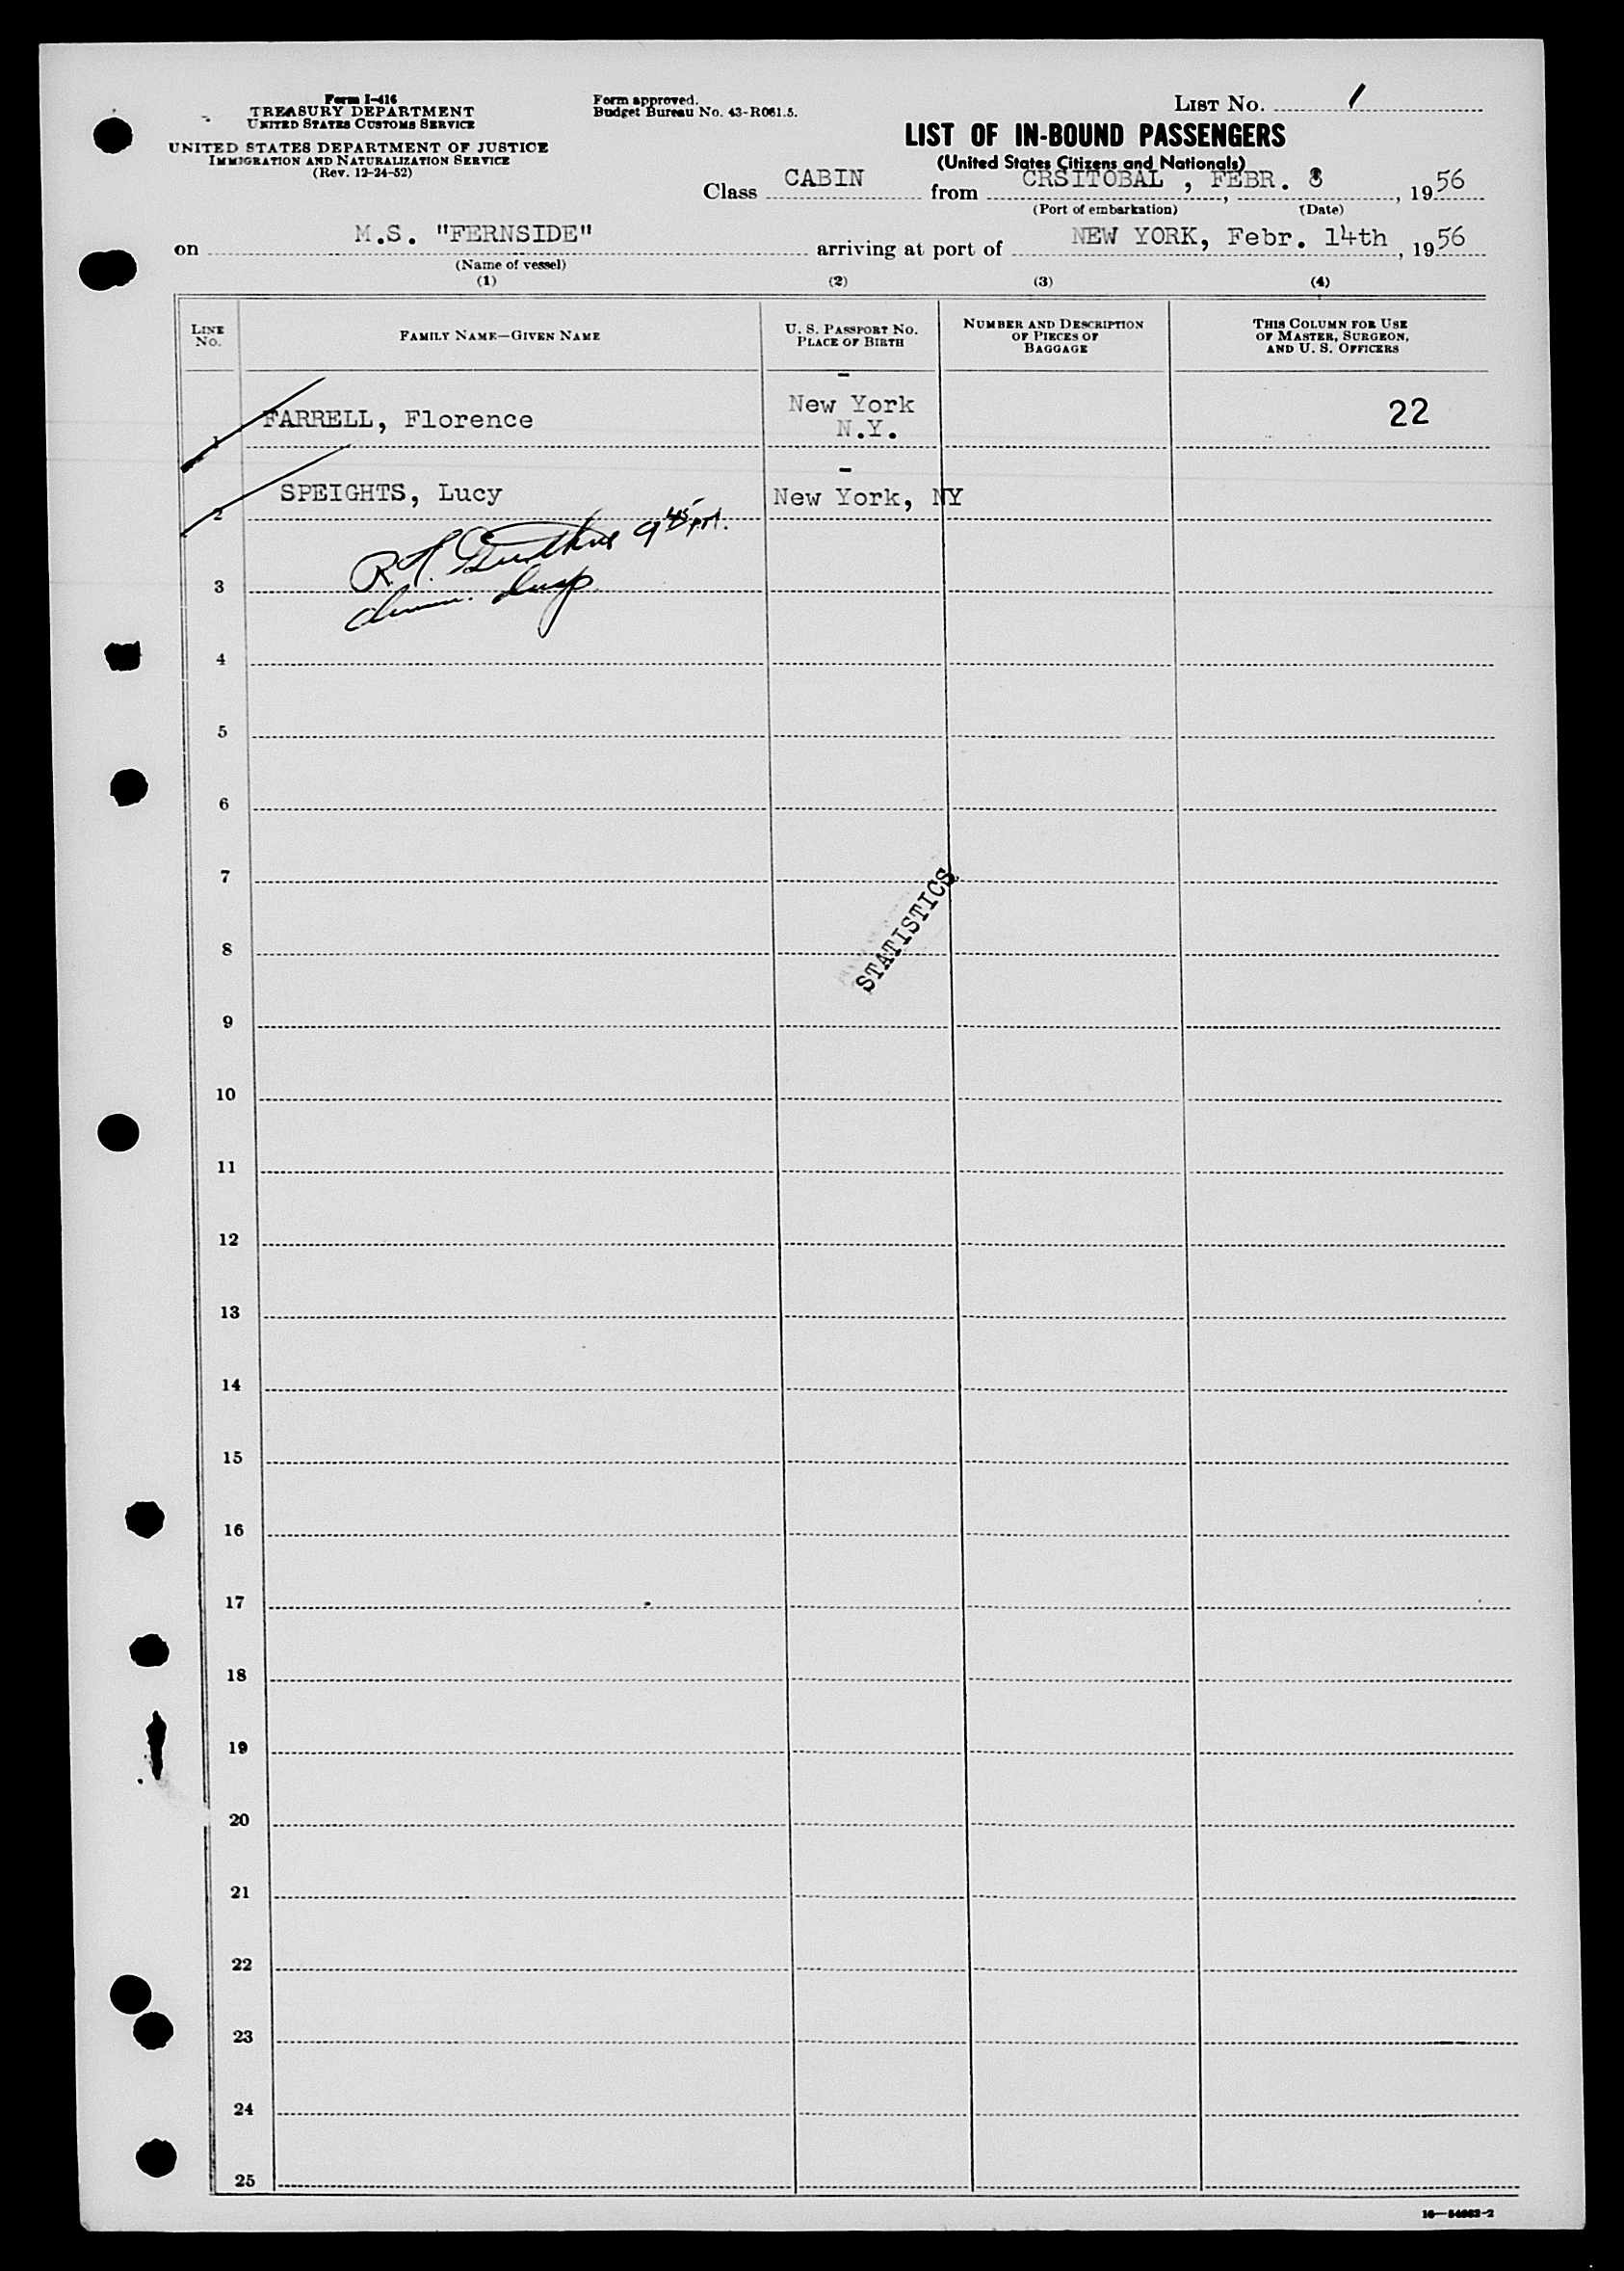 Form I-416
TREASURY DEPARTMENT
UNITED STATES CUSTOMS SERVICE
UNITED STATES DEPARTMENT OF JUSTICE
IMMIGRATION AND NATURALIZATION SERVICE
(Rev. 12-24-52)
Form approved.
Budget Bureau No. 43-R061.5.
LIST No. 1
LIST OF IN-BOUND PASSENGERS
(United States Citizens and Nationals)
Class CABIN from CRSITOBAL , FEBR. 8, 1956
(Port of embarkation) (Date)
on M.S. "FERNSIDE" arriving at port of NEW YORK, Febr. 14th, 1956
(Name of vessel)
(1) (2) (3) (4)
LINE NO. FAMILY NAME—GIVEN NAME U. S. PASSPORT NO. PLACE OF BIRTH NUMBER AND DESCRIPTION OF PIECES OF BAGGAGE THIS COLUMN FOR USE OF MASTER, SURGEON, AND U. S. OFFICERS
1 FARRELL, Florence - New York N.Y. 22
2 SPEIGHTS, Lucy - New York, NY
R.H. 9 45 P.M.
3
Insp.
4
5
6
7
STATISTICS
8
9
10
11
12
13
14
15
16
17
18
19
20
21
22
23
24
25